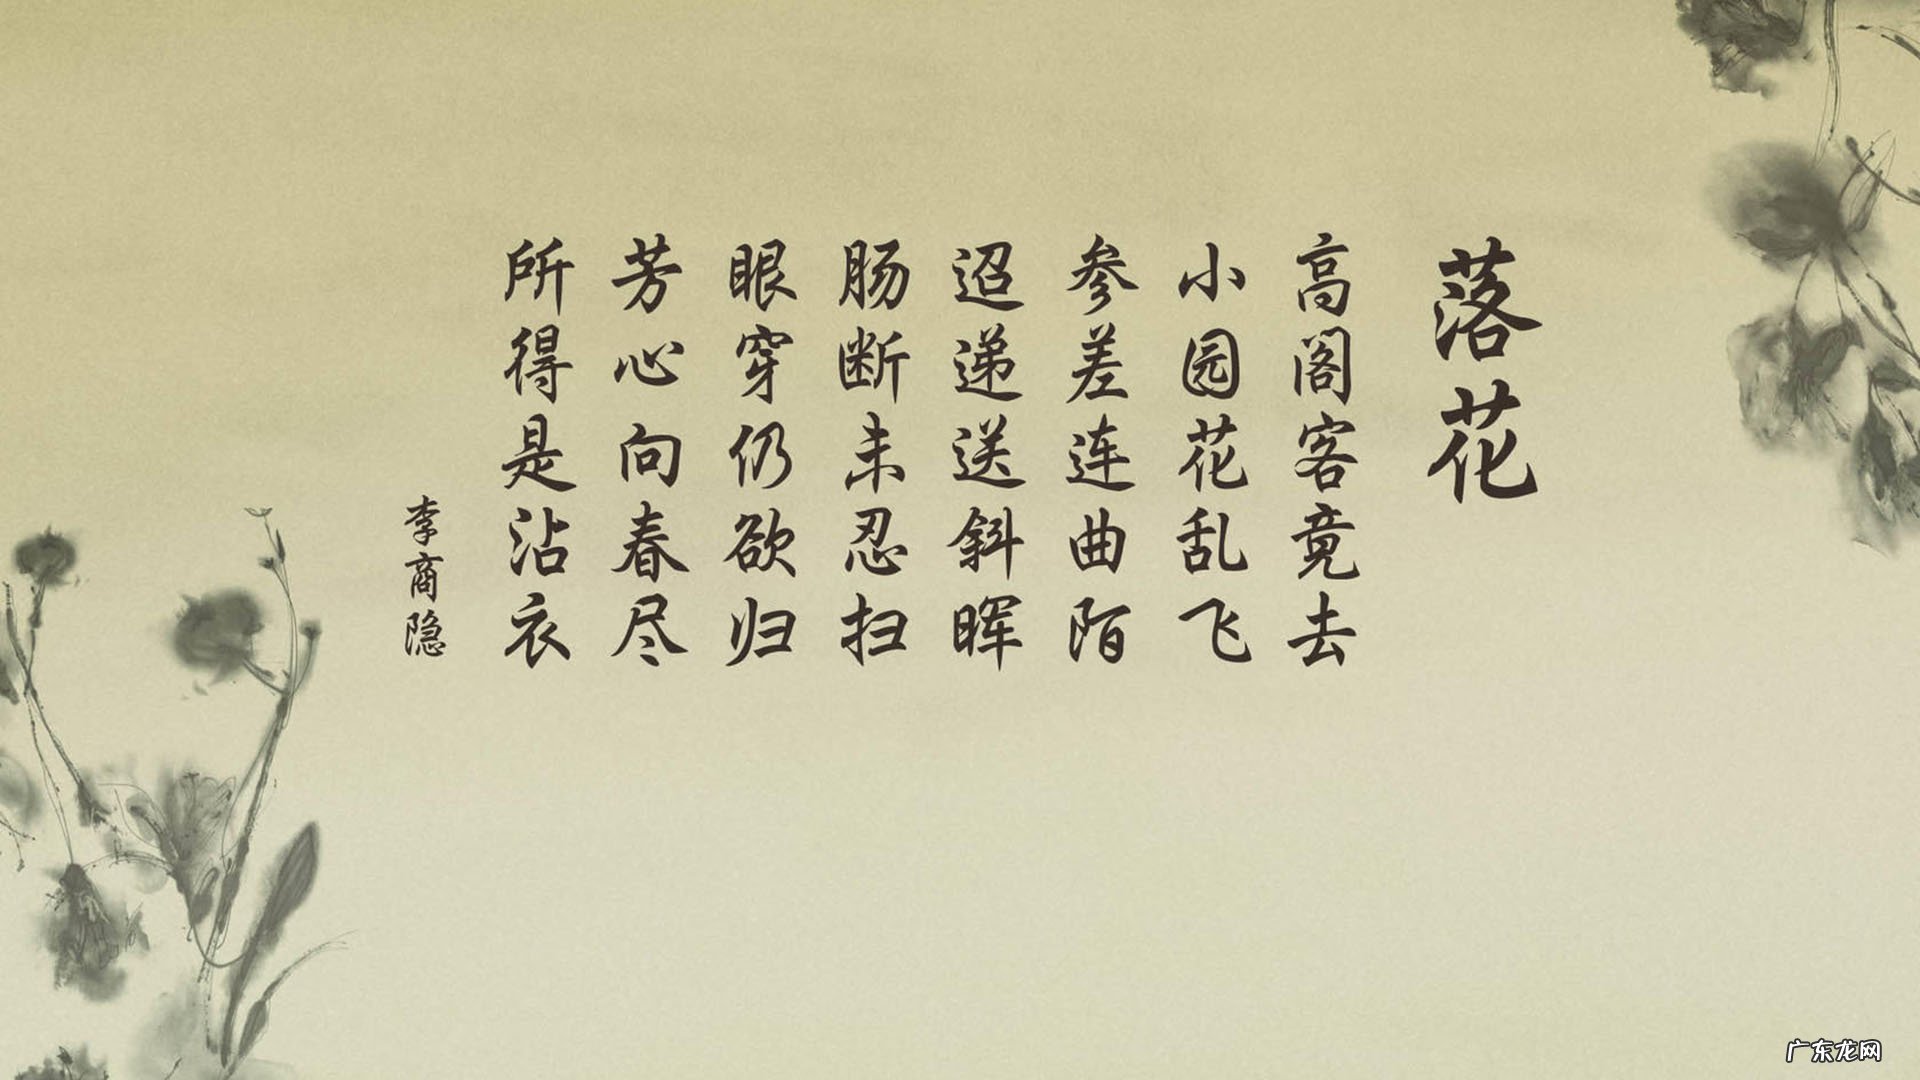 落花
高阁客竟去
小园花乱飞
参差连曲陌
迢递送斜晖
肠断未忍扫
眼穿仍欲归
芳心向春尽
所得是沾衣
李商隐
广东龙网